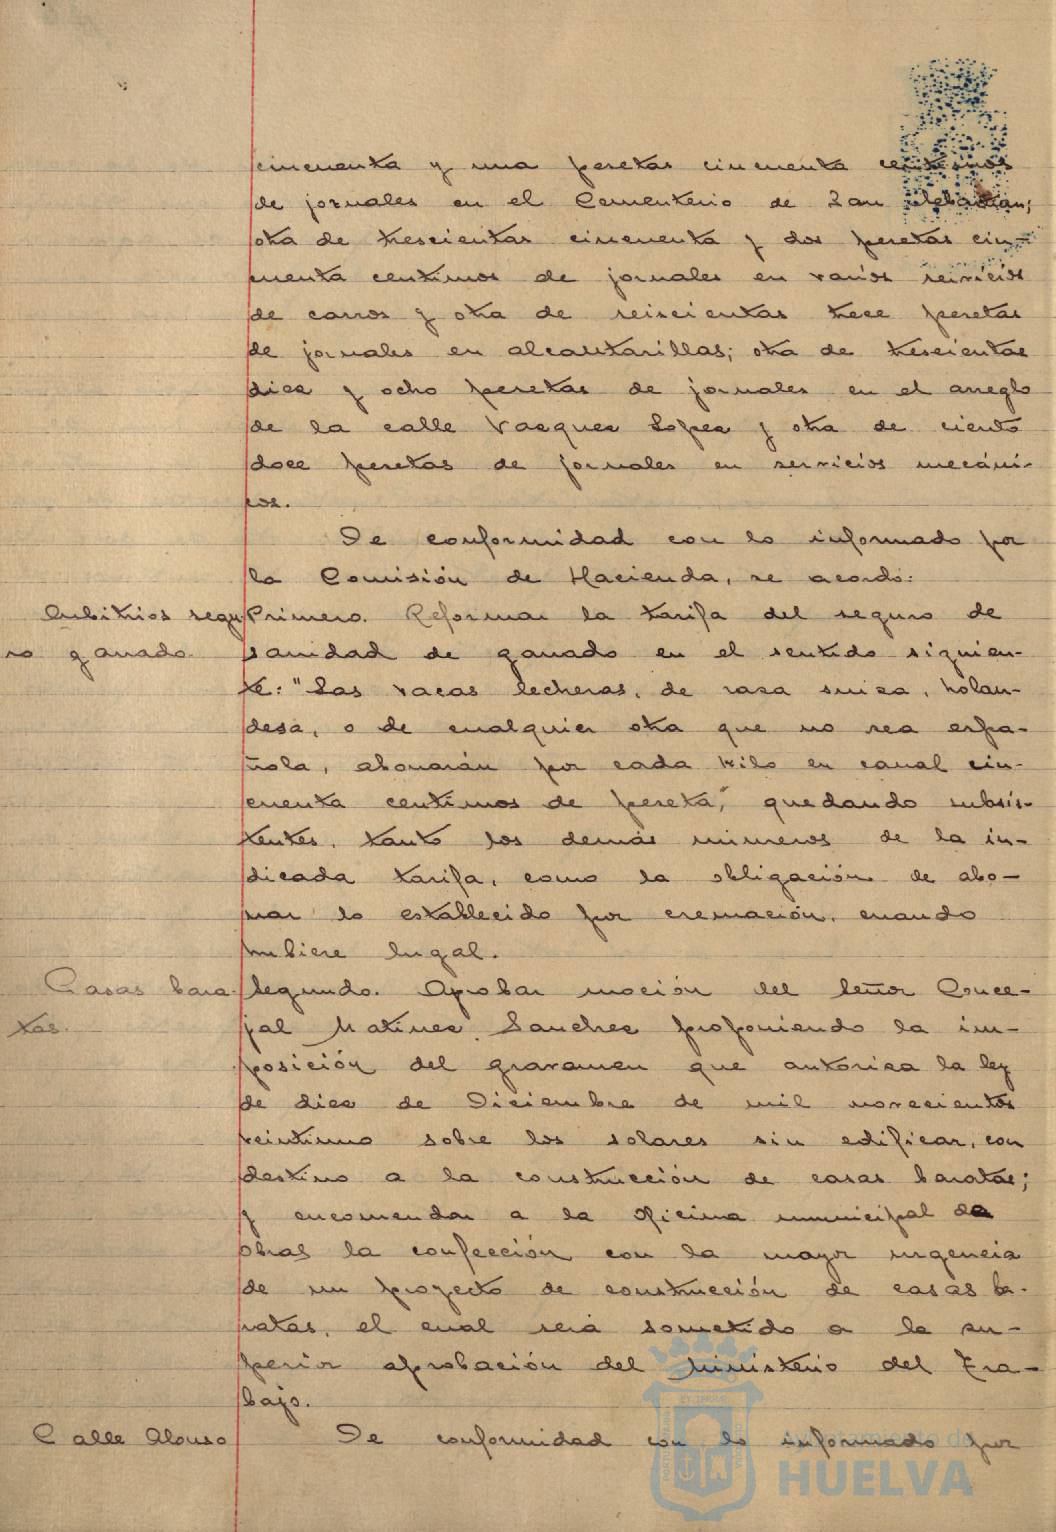 cincuenta y una pesetas cincuenta centimos
de jornales en el Cementerio de San Sebastian;
otra de trescientas cincuenta y dos pesetas cin-
cuenta centimos de jornales en varios servicios
de carros y otra de seiscientas trece pesetas
de jornales en alcantarillas; otra de trescientas
diez y ocho pesetas de jornales en el arreglo
de la calle Vazquez Lopez y otra de ciento
doce pesetas de jornales en servicios mecáni-
cos.
De conformidad con lo informado por
la Comisión de Hacienda, se acordó:
Arbitrios segu-
ro ganado.
Primero. Reformar la tarifa del seguro de
sanidad de ganado en el sentido siguien-
te: "Las vacas lecheras, de raza suiza, holan-
desa, o de cualquier otra que no sea espa-
ñola, abonarán por cada kilo en canal cin-
cuenta centimos de peseta," quedando subsis-
tentes, tanto los demás números de la in-
dicada tarifa, como la obligación de abo-
nar lo establecido por cremación, cuando
hubiere lugar.
Casas bara-
tas.
Segundo. Aprobar moción del Señor Conce-
jal Matinez Sanchez proponiendo la im-
posición del gravamen que autoriza la ley
de diez de Diciembre de mil novecientos
veintiuno sobre los solares sin edificar, con
destino a la construcción de casas baratas;
y encomendar a la oficina municipal de
obras la confección con la mayor urgencia
de un proyecto de construcción de casas ba-
ratas, el cual será sometido a la su-
perior aprobación del Ministerio del Tra-
bajo.
Calle Alonso
De conformidad con lo informado por
Ayuntamiento de
HUELVA